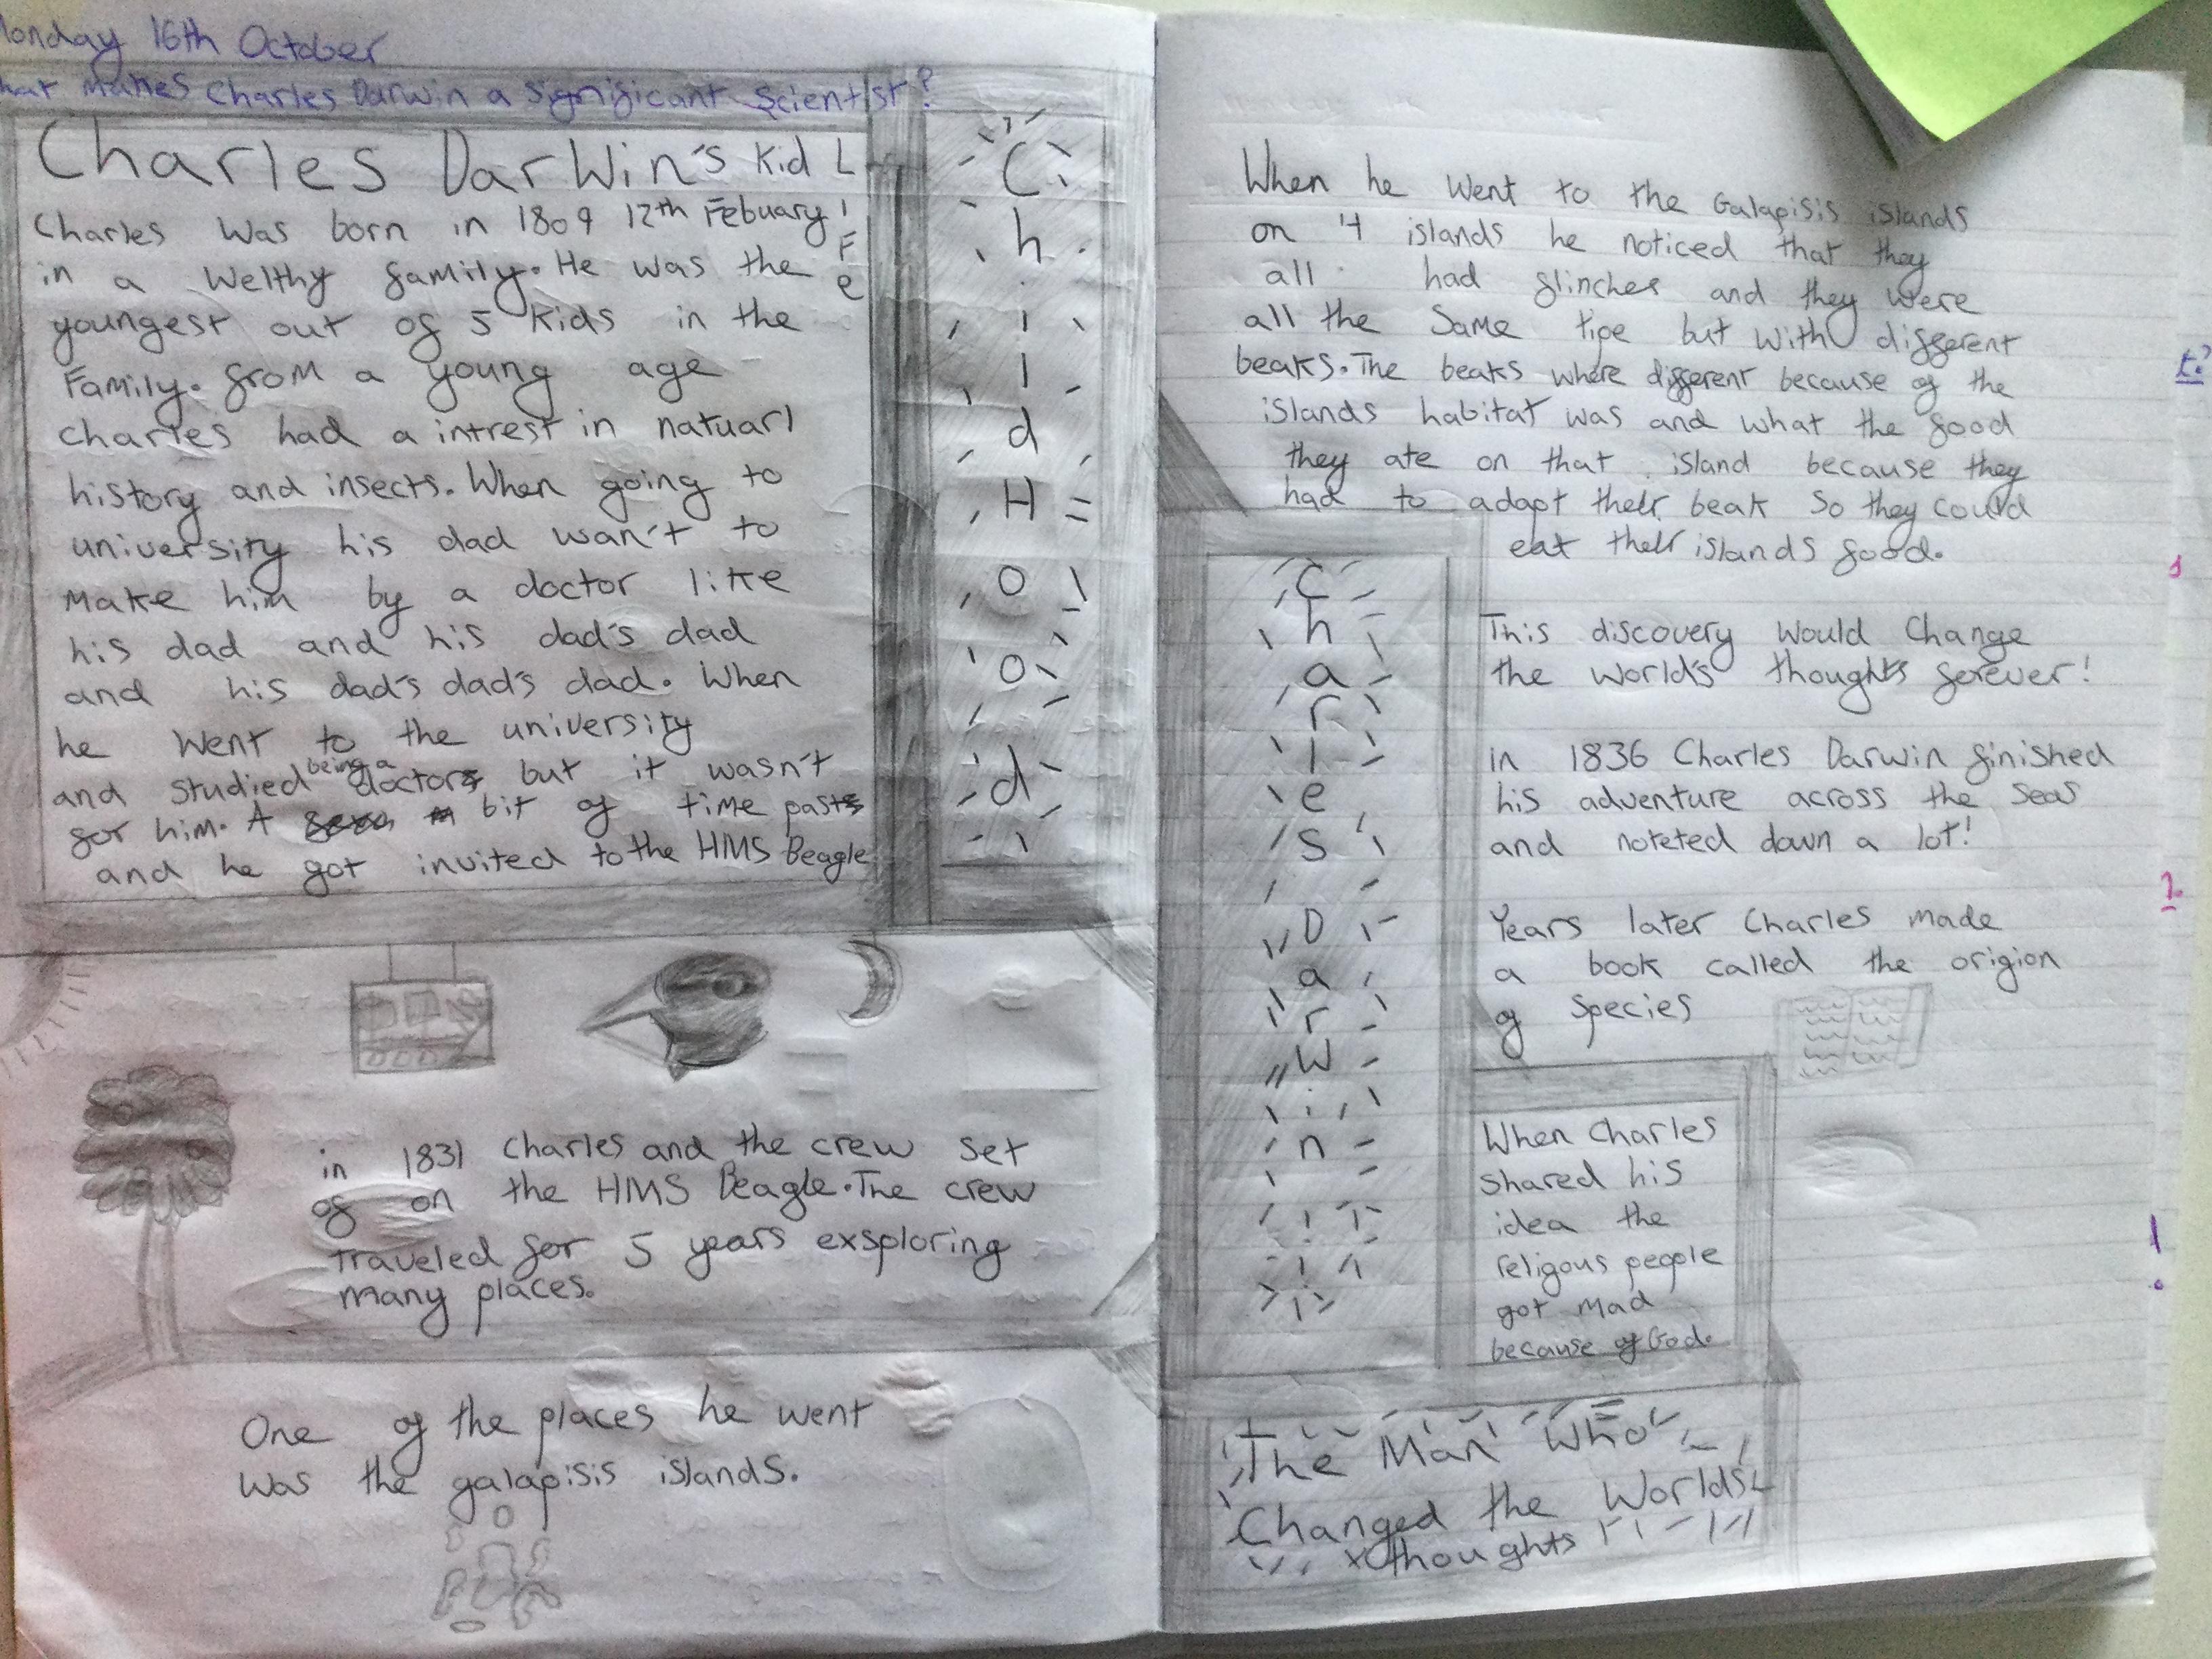 Monday 16th October
What makes Charles Darwin a significant scientist?
Charles DarWin's Kid LIFe
Charles was born in 1809 12th Febuary
in a welthy family. He was the
youngest out of 5 kids in the
Family. from a young age
Charles had a intrest in natuarl
history and insects. When going to
university his dad wan't to
make him by a doctor like
his dad and his dad's dad
and his dad's dad's dad. When
he went to the university
and studied being a doctor but it wasn't
for him. A bit of time past
and he got invited to the HMS Beagle
Child Hood
in 1831 Charles and the crew set
of on the HMS Beagle. The crew
traveled for 5 years exsploring
many places.
One of the places he went
was the galapisis islands.
When he went to the Galapisis islands
on 4 islands he noticed that they
all had flinches and they were
all the same tipe but with different
beaks. The beaks where different because of the
islands habitat was and what the food
they ate on that island because they
had to adapt their beak so they could
eat their islands food.
Charles Darwin
This discovery would change
the world's thoughts forever!
in 1836 Charles Darwin finished
his adventure across the seas
and noteted down a lot!
Years later Charles made
a book called the origion
of species
When Charles
shared his
idea the
religous people
got mad
because of God.
The Man Who
Changed the Worlds
thoughts